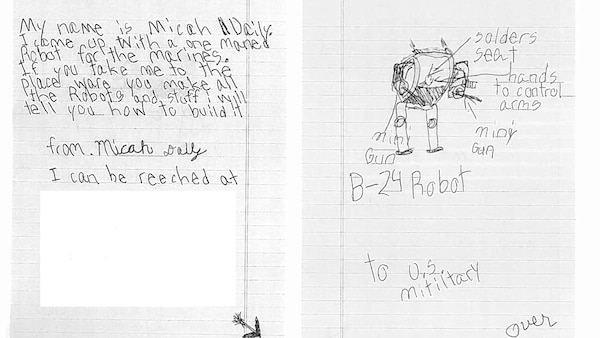 My name is Micah Daily.
I came up with a one maned
Robot for the marines.
If you take me to the
place where you make all
the Robots and stuff i will
tell you how to build it
from. Micah Daily
I can be reeched at
solders
seat
hands
to control
arms
miny
Gun
miny
Gun
B-24 Robot
to U.S.
mitiltary
over